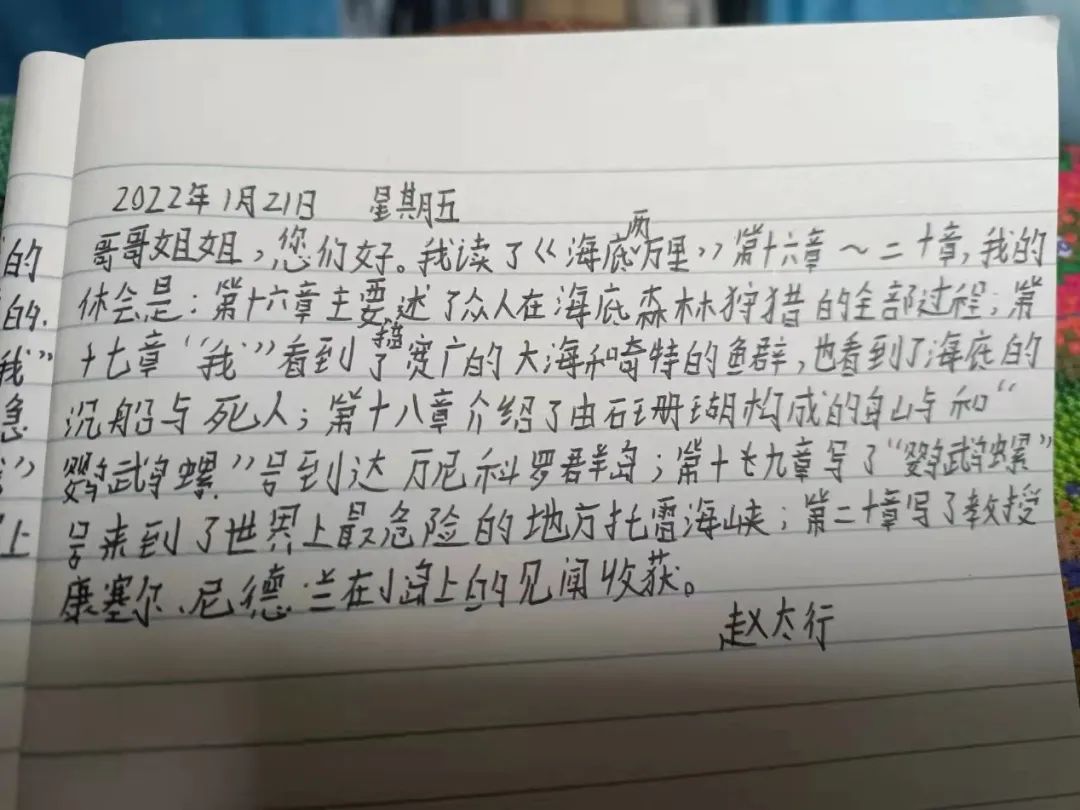 2022年1月21日 星期五
哥哥姐姐,您们好。我读了《海底两万里》第十六章～二十章,我的
体会是:第十六章主要述了众人在海底森林狩猎的全部过程;第
十七章“我”看到了宽广的大海和奇特的鱼群,也看到了海底的
沉船与死人;第十八章介绍了由石珊瑚构成的岛山与和“
鹦鹉螺”号到达万尼科罗群岛;第十九章写了“鹦鹉螺”
号来到了世界上最危险的地方托雷海峡;第二十章写了教授
康塞尔、尼德·兰在小岛上的见闻收获。
赵太行
的
的.
我”
急
”
上